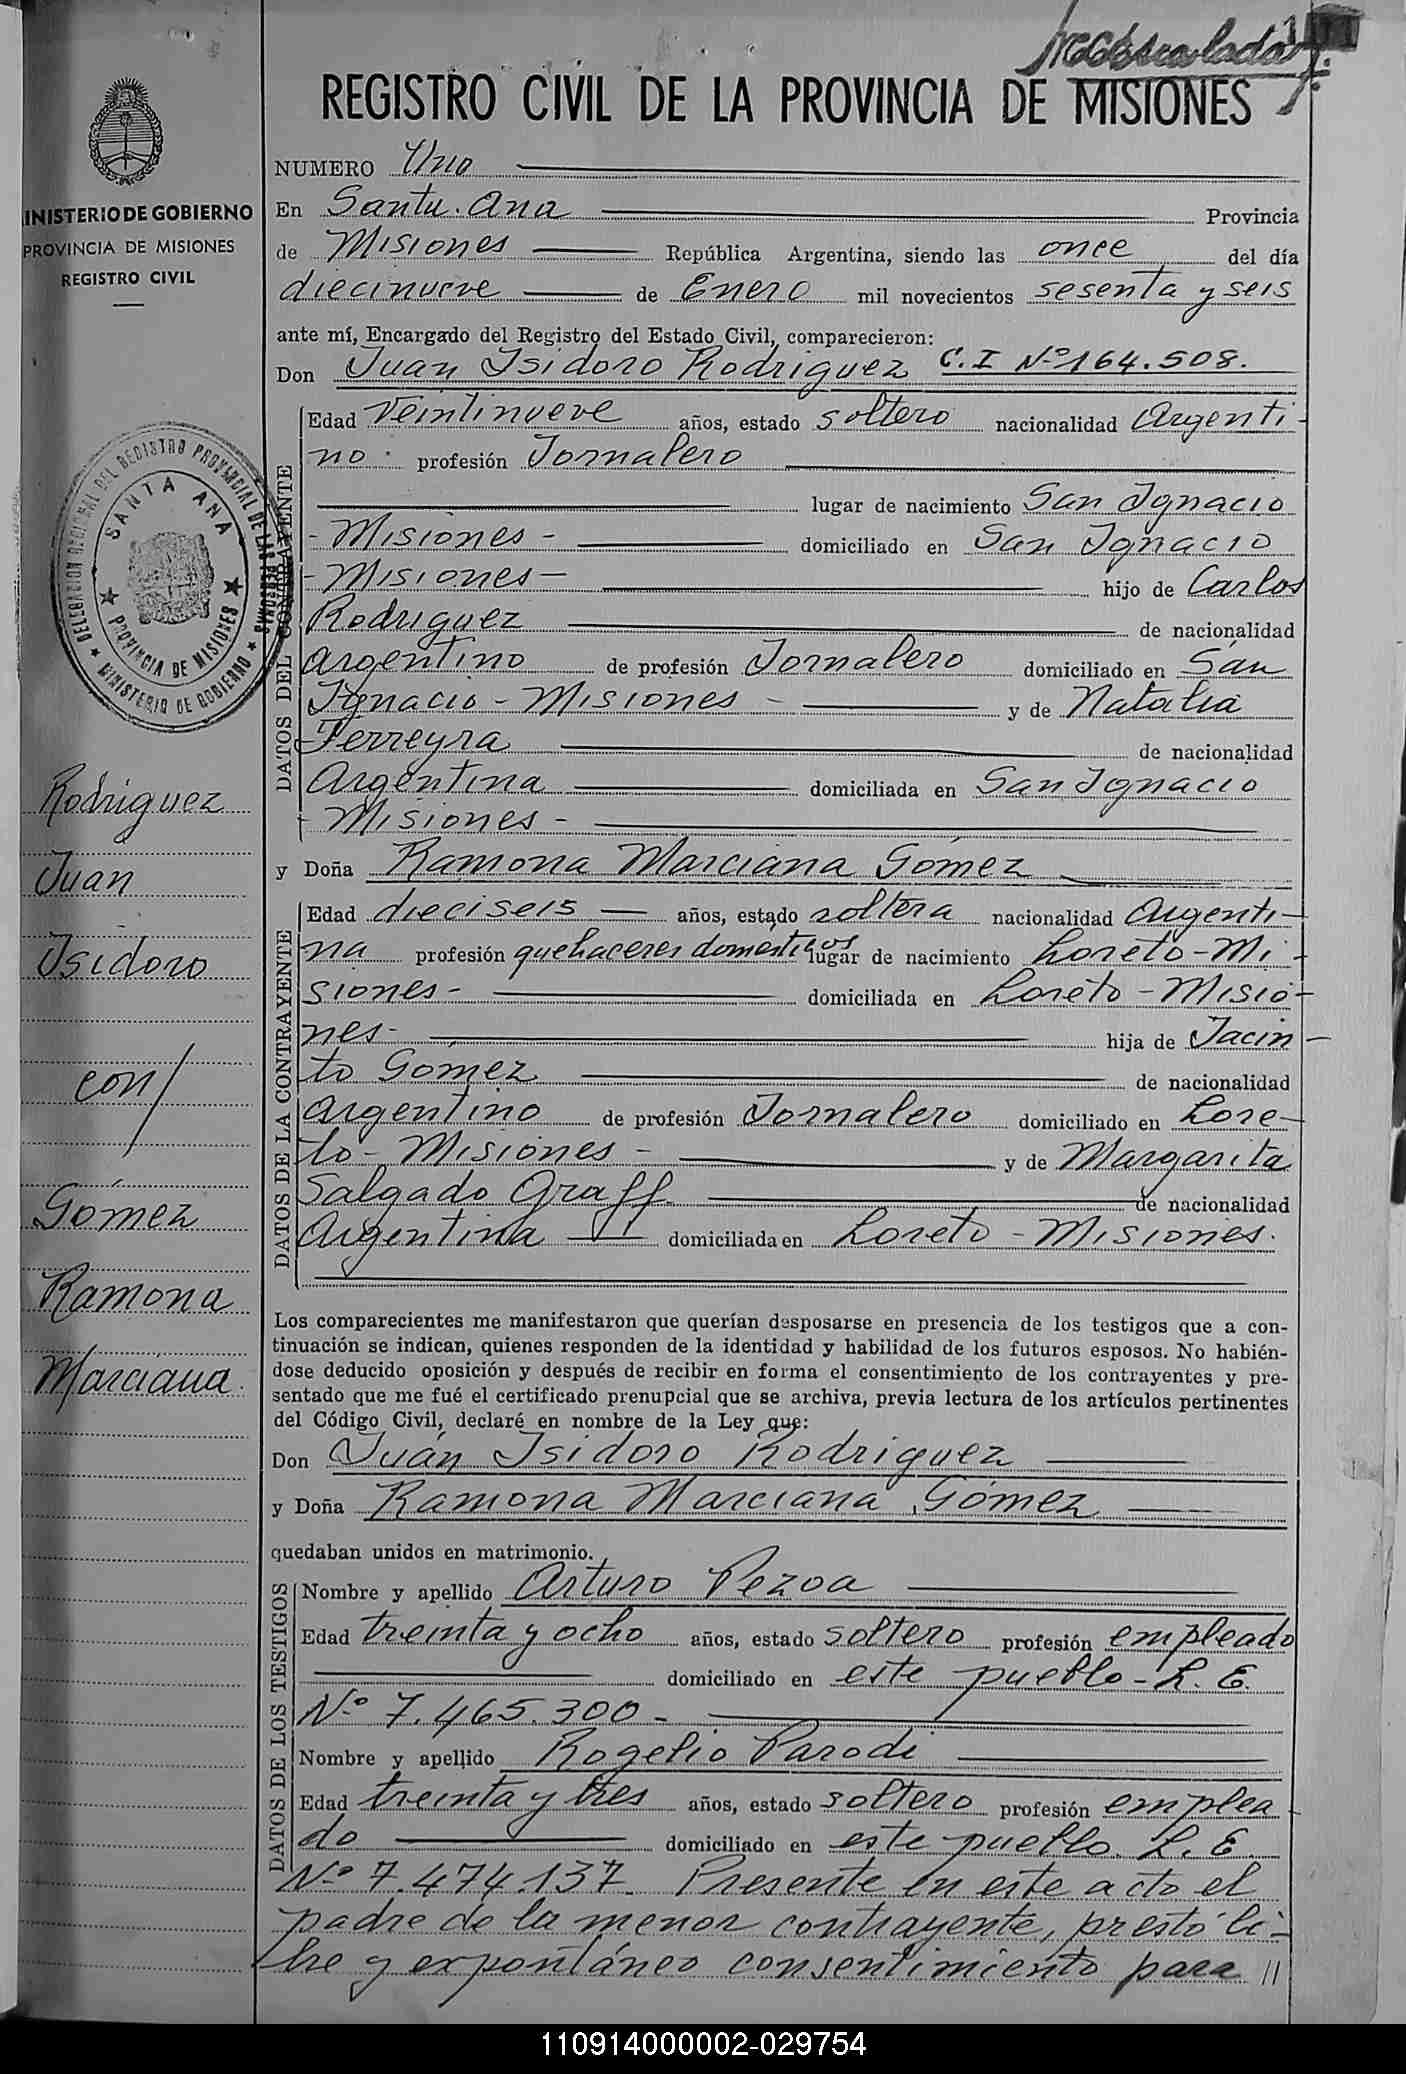 REGISTRO CIVIL DE LA PROVINCIA DE MISIONES
MINISTERIO DE GOBIERNO
PROVINCIA DE MISIONES
REGISTRO CIVIL
NUMERO Uno
En Santa Ana Provincia
de Misiones República Argentina, siendo las once del día
diecinueve de Enero mil novecientos sesenta y seis
ante mí, Encargado del Registro del Estado Civil, comparecieron:
Don Juan Isidoro Rodriguez C.I Nº 164.508.
DATOS DEL CONTRAYENTE
Edad Veintinueve años, estado soltero nacionalidad Argenti-
no profesión Jornalero
lugar de nacimiento San Ignacio
- Misiones - domiciliado en San Ignacio
- Misiones - hijo de Carlos
Rodriguez de nacionalidad
argentino de profesión Jornalero domiciliado en San
Ignacio - Misiones - y de Natalia
Ferreyra de nacionalidad
Argentina domiciliada en San Ignacio
- Misiones -
y Doña Ramona Marciana Gómez
DATOS DE LA CONTRAYENTE
Edad dieciseis años, estado soltera nacionalidad Argenti-
na profesión quehaceres domésticos lugar de nacimiento Loreto - Mi-
siones - domiciliada en Loreto - Misio-
nes - hija de Jacin-
to Gómez de nacionalidad
argentino de profesión Jornalero domiciliado en Lore-
to - Misiones - y de Margarita
Salgado Graff de nacionalidad
Argentina domiciliada en Loreto - Misiones.
Los comparecientes me manifestaron que querían desposarse en presencia de los testigos que a con-
tinuación se indican, quienes responden de la identidad y habilidad de los futuros esposos. No habién-
dose deducido oposición y después de recibir en forma el consentimiento de los contrayentes y pre-
sentado que me fué el certificado prenupcial que se archiva, previa lectura de los artículos pertinentes
del Código Civil, declaré en nombre de la Ley que:
Don Juán Isidoro Rodriguez
y Doña Ramona Marciana Gómez
quedaban unidos en matrimonio.
DATOS DE LOS TESTIGOS
Nombre y apellido Arturo Pezoa
Edad treinta y ocho años, estado soltero profesión empleado
domiciliado en este pueblo - L. E.
Nº 7.465.300 -
Nombre y apellido Rogelio Parodi
Edad treinta y tres años, estado soltero profesión emplea-
do domiciliado en este pueblo. L. E.
Nº 7.474.137. Presente en este acto el
padre de la menor contrayente, prestó li-
bre y expontáneo consentimiento para //
DELEGACION REGIONAL DEL REGISTRO PROVINCIAL DE LAS PERSONAS
SANTA ANA
PROVINCIA DE MISIONES
MINISTERIO DE GOBIERNO
Rodriguez
Juan
Isidoro
con/
Gómez
Ramona
Marciana.
110914000002-029754